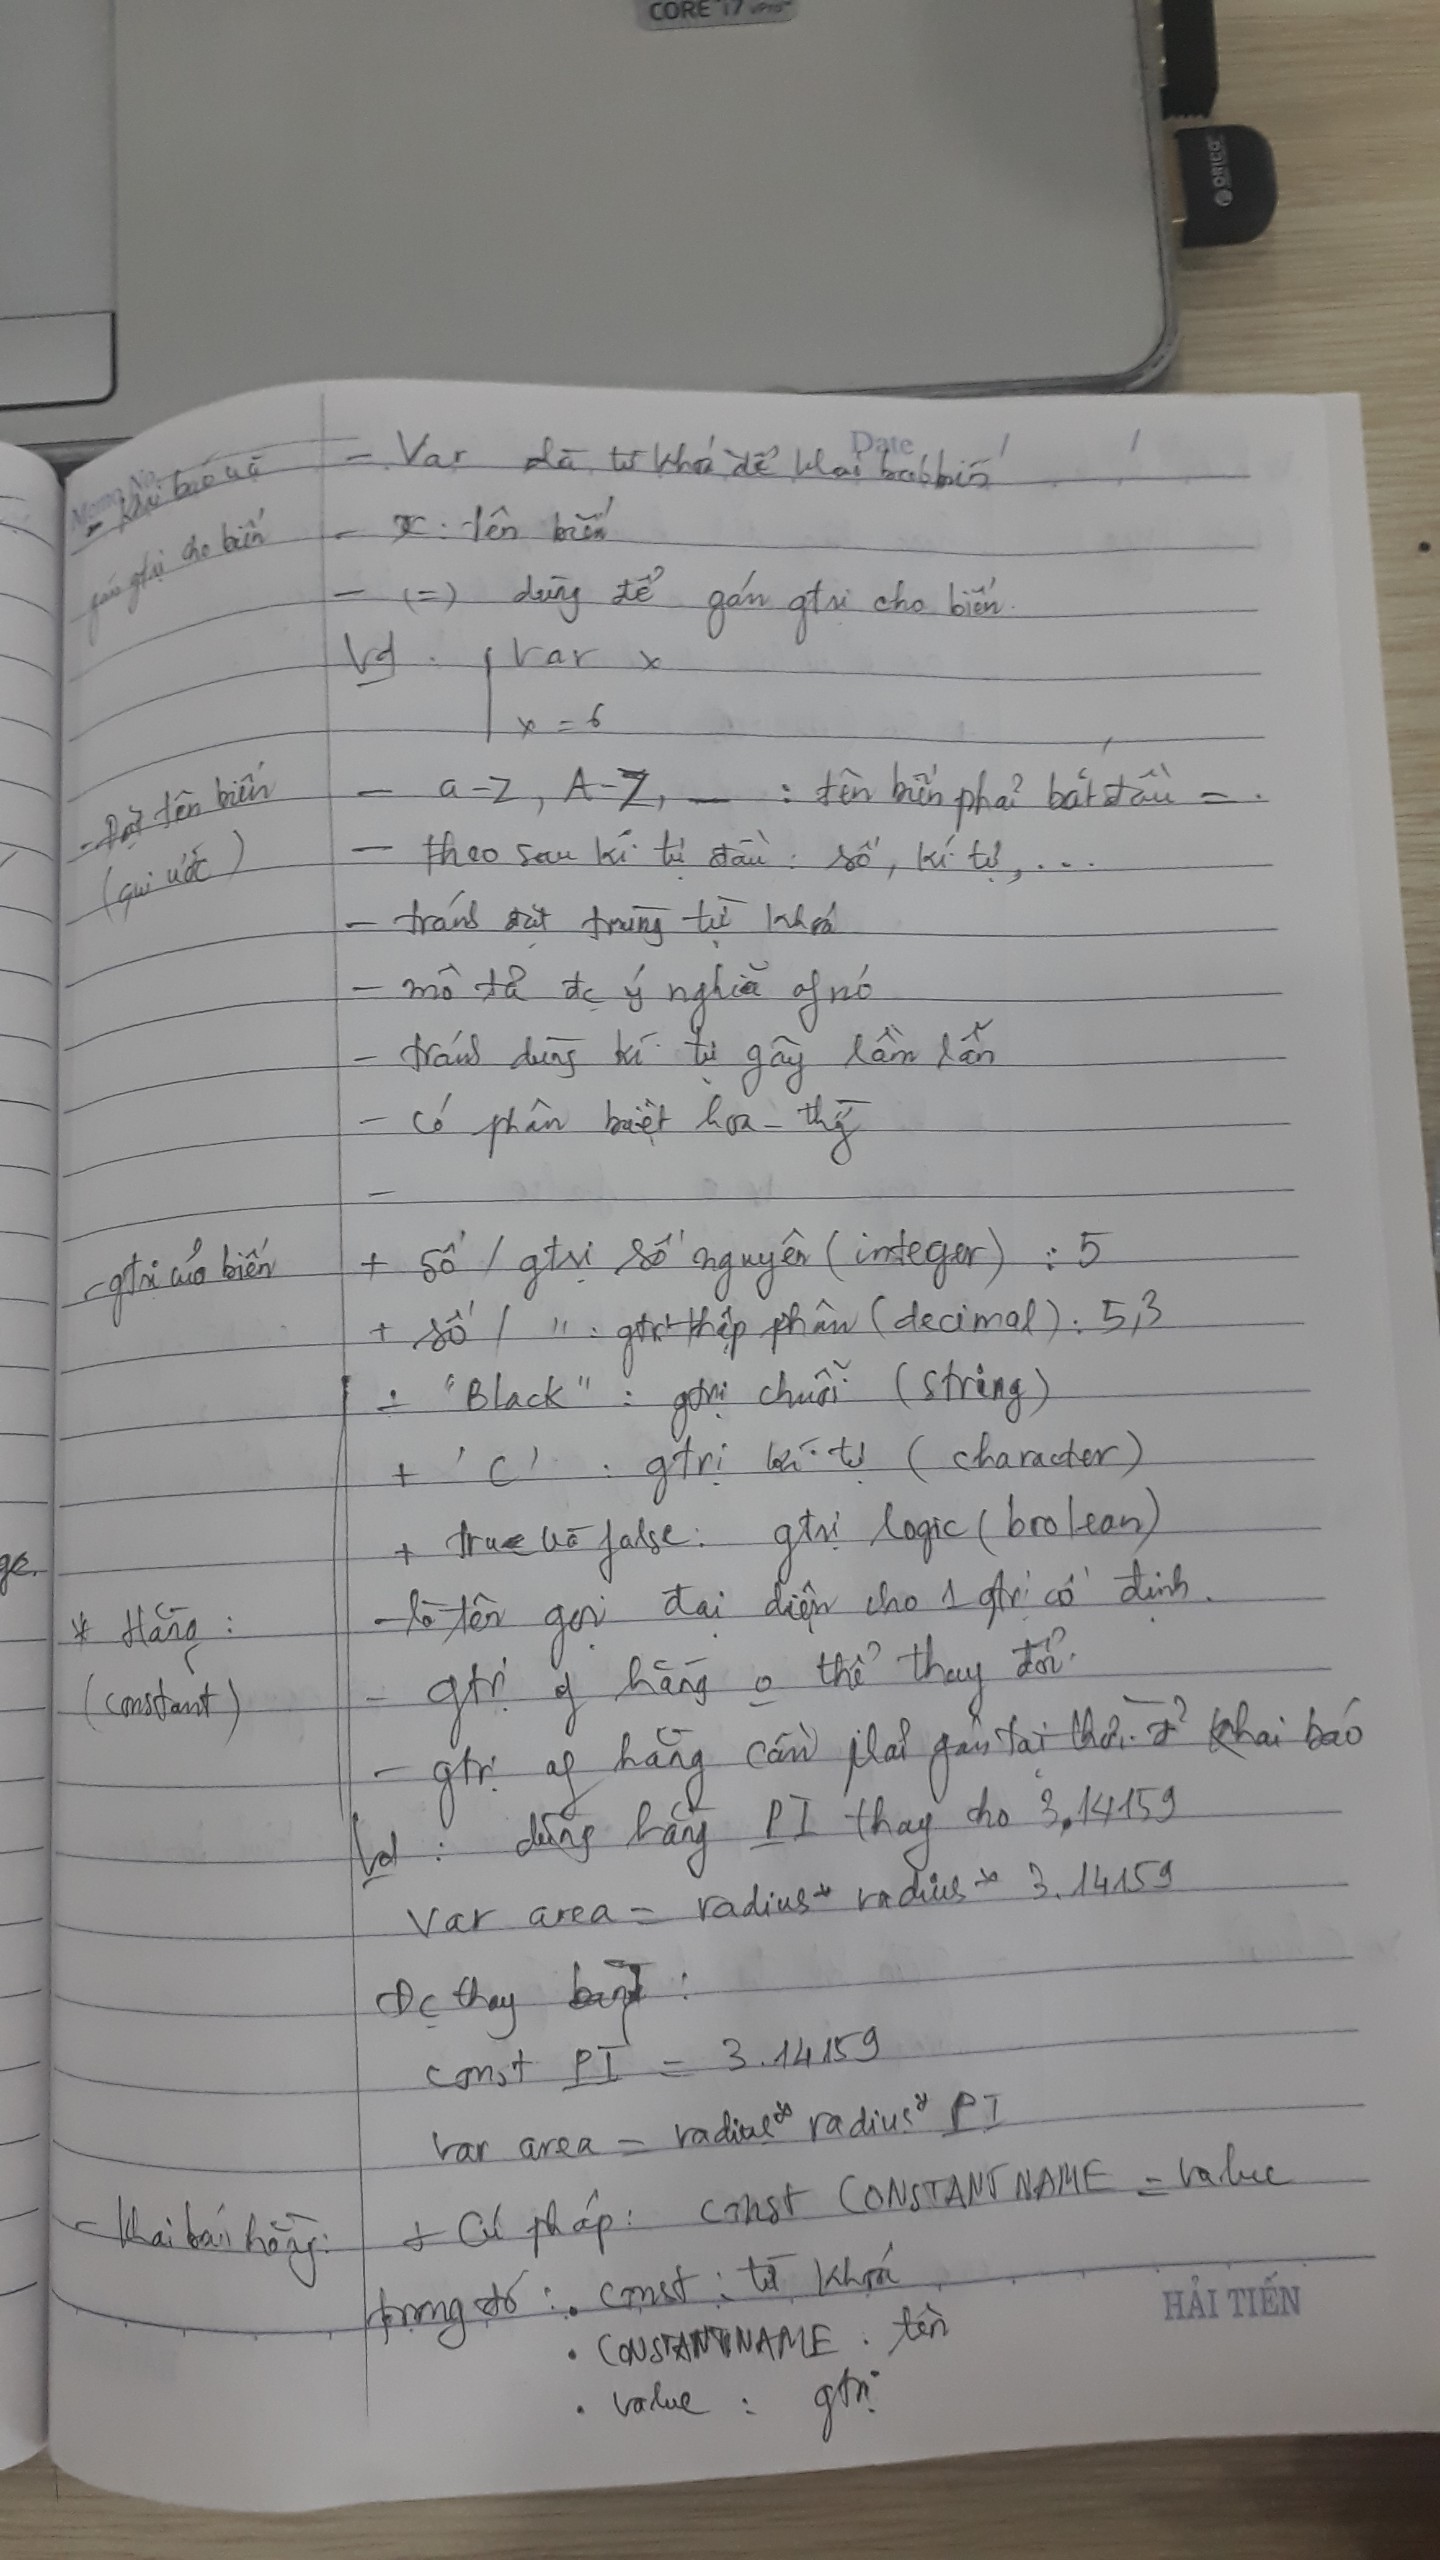 CORE i7 vPro
ORICO
Memo No.
Date / /
- Khai báo và
gán gtrị cho biến
- Var là từ khoá để khai báo biến
- x : tên biến
- (=) dùng để gán gtrị cho biến.
Vd : var x
x = 6
- Đặt tên biến
(qui ước)
- a-z, A-Z, _ : tên biến phải bắt đầu = .
- theo sau kí tự đầu : số, kí tự, ...
- tránh đặt trùng từ khoá
- mô tả đc ý nghĩa of nó
- tránh dùng kí tự gây lầm lẫn
- có phân biệt hoa - thg
-
- gtrị của biến
+ số / gtrị số nguyên (integer) : 5
+ số / " : gtrị thập phân (decimal) : 5,3
+ "Black" : gtrị chuỗi (string)
+ 'C' : gtrị kí tự (character)
+ true và false : gtrị logic (boolean)
ge.
* Hằng :
(constant)
- là tên gọi đại diện cho 1 gtrị cố định.
- gtrị of hằng o thể thay đổi.
- gtrị of hằng cần phải gán tại thời đ² khai báo
Vd : dùng hằng PI thay cho 3.14159
Var area = radius * radius * 3.14159
Đc thay bằng :
const PI = 3.14159
var area = radius * radius * PI
- Khai báo hằng :
+ Cú pháp : const CONSTANTNAME = value
trong đó : . const : từ khoá
. CONSTANTNAME : tên
. value : gtrị
HẢI TIẾN